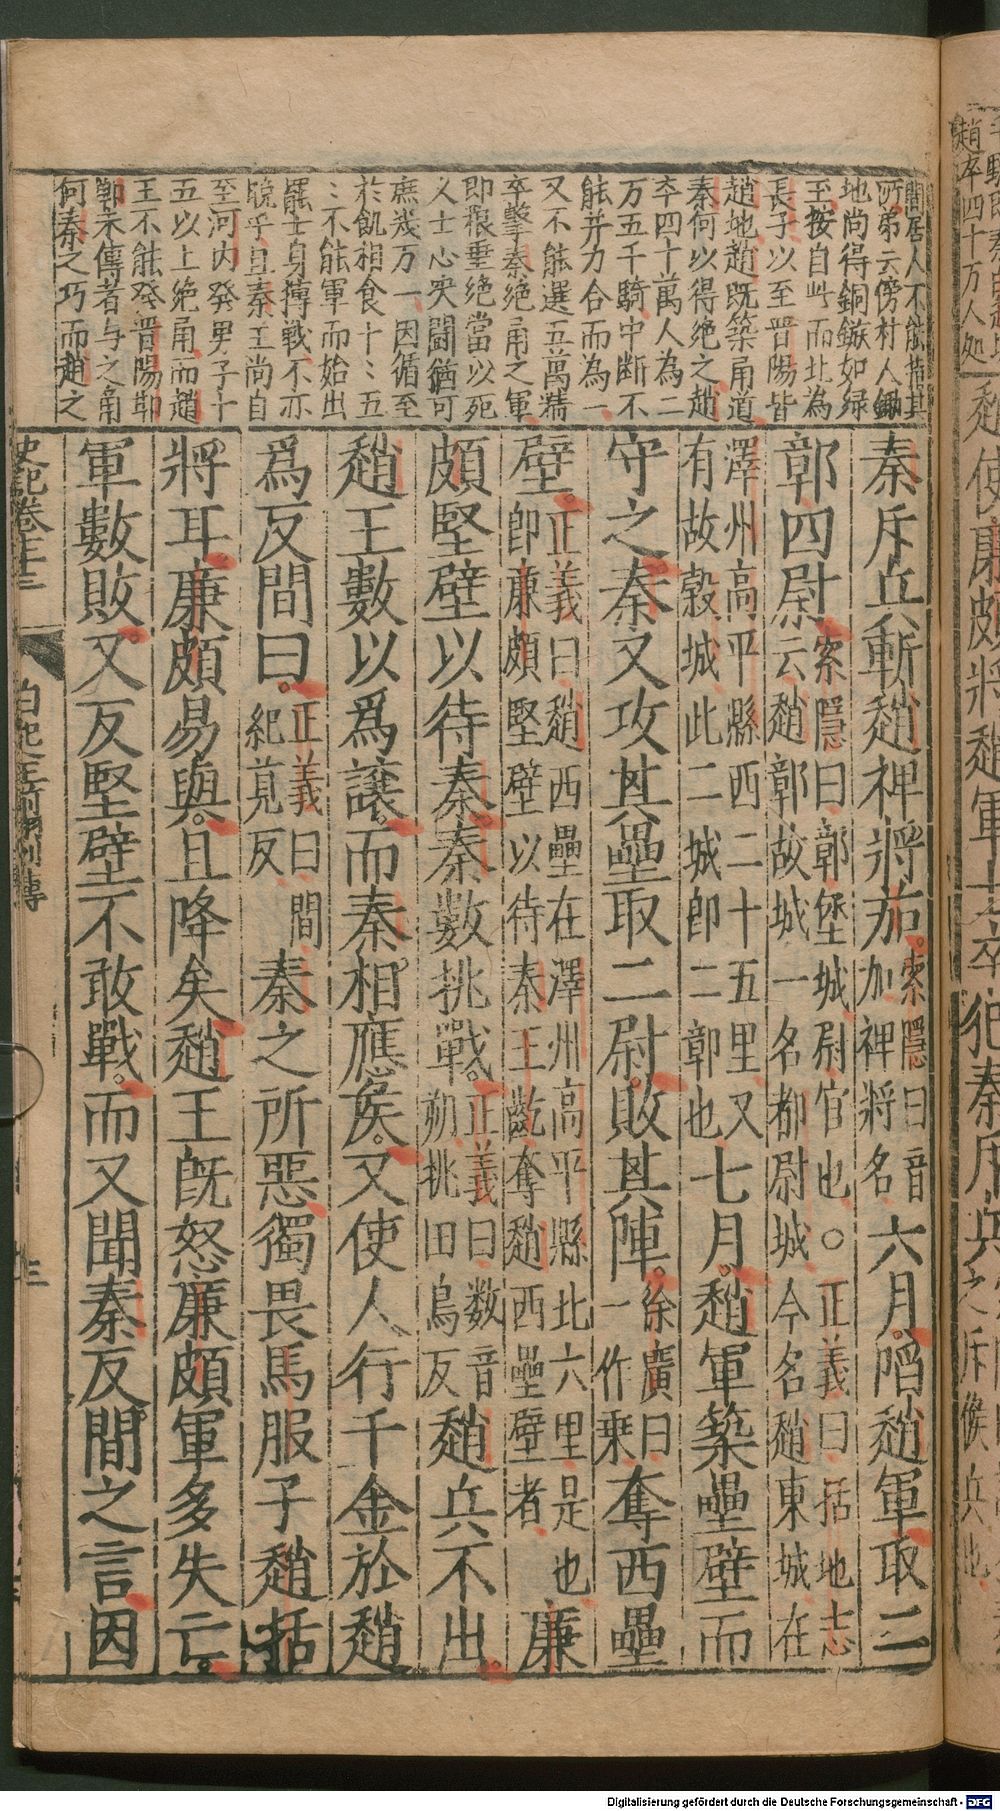 間居人不能指其
所弟云傍村人鋤
地尚得銅鏃如緑
至按自此而北為
長子以至晋陽皆
趙地趙既築甬道
秦何以得絶之趙
卒四十萬人為二
万五千騎中断不
能并力合而為一
又不能選五萬精
卒擊秦絶甬之軍
即糧垂絶當以死
人士心突闘猶可
庶㡬万一因循至
於飢相食十〻五
〻不能軍而始出
羅士身摶戰不亦
晩乎且秦王尚自
至河内發男子十
五以上絶甬而趙
王不能發晋陽
邯永傳者与之甬
何秦之巧而趙之
秦斥兵斬趙裨將茄索隱曰音加裨將名六月䧟趙軍取二
鄣四尉索隱曰鄣堡城尉官也○正義曰括地志云趙鄣故城一名都尉城今名趙東城在
澤州高平縣西二十五里又有故榖城此二城即二鄣也七月趙軍築壘壁而
守之秦又攻其壘取二尉敗其陣徐廣曰一作乗奪西壘
壁正義曰趙西壘在澤州高平縣北六里是也即廉頗堅壁以待秦王齕奪趙西壘壁者廉
頗堅壁以待秦秦數挑戰正義曰数音朔挑田鳥反趙兵不出
趙王數以爲讓而秦相應侯又使人行千金於趙
爲反間曰正義曰間紀莧反秦之所惡獨畏馬服子趙括
將耳廉頗易與且降矣趙王既怒廉頗軍多失亡
軍數敗又反堅壁不敢戰而又聞秦反間之言因
史記卷七十三
白起王翦列傳
三
趙卒四十万人処
趙使廉頗將趙軍士卒犯秦斥兵之斥候兵也
Digitalisierung gefördert durch die Deutsche Forschungsgemeinschaft - DFG